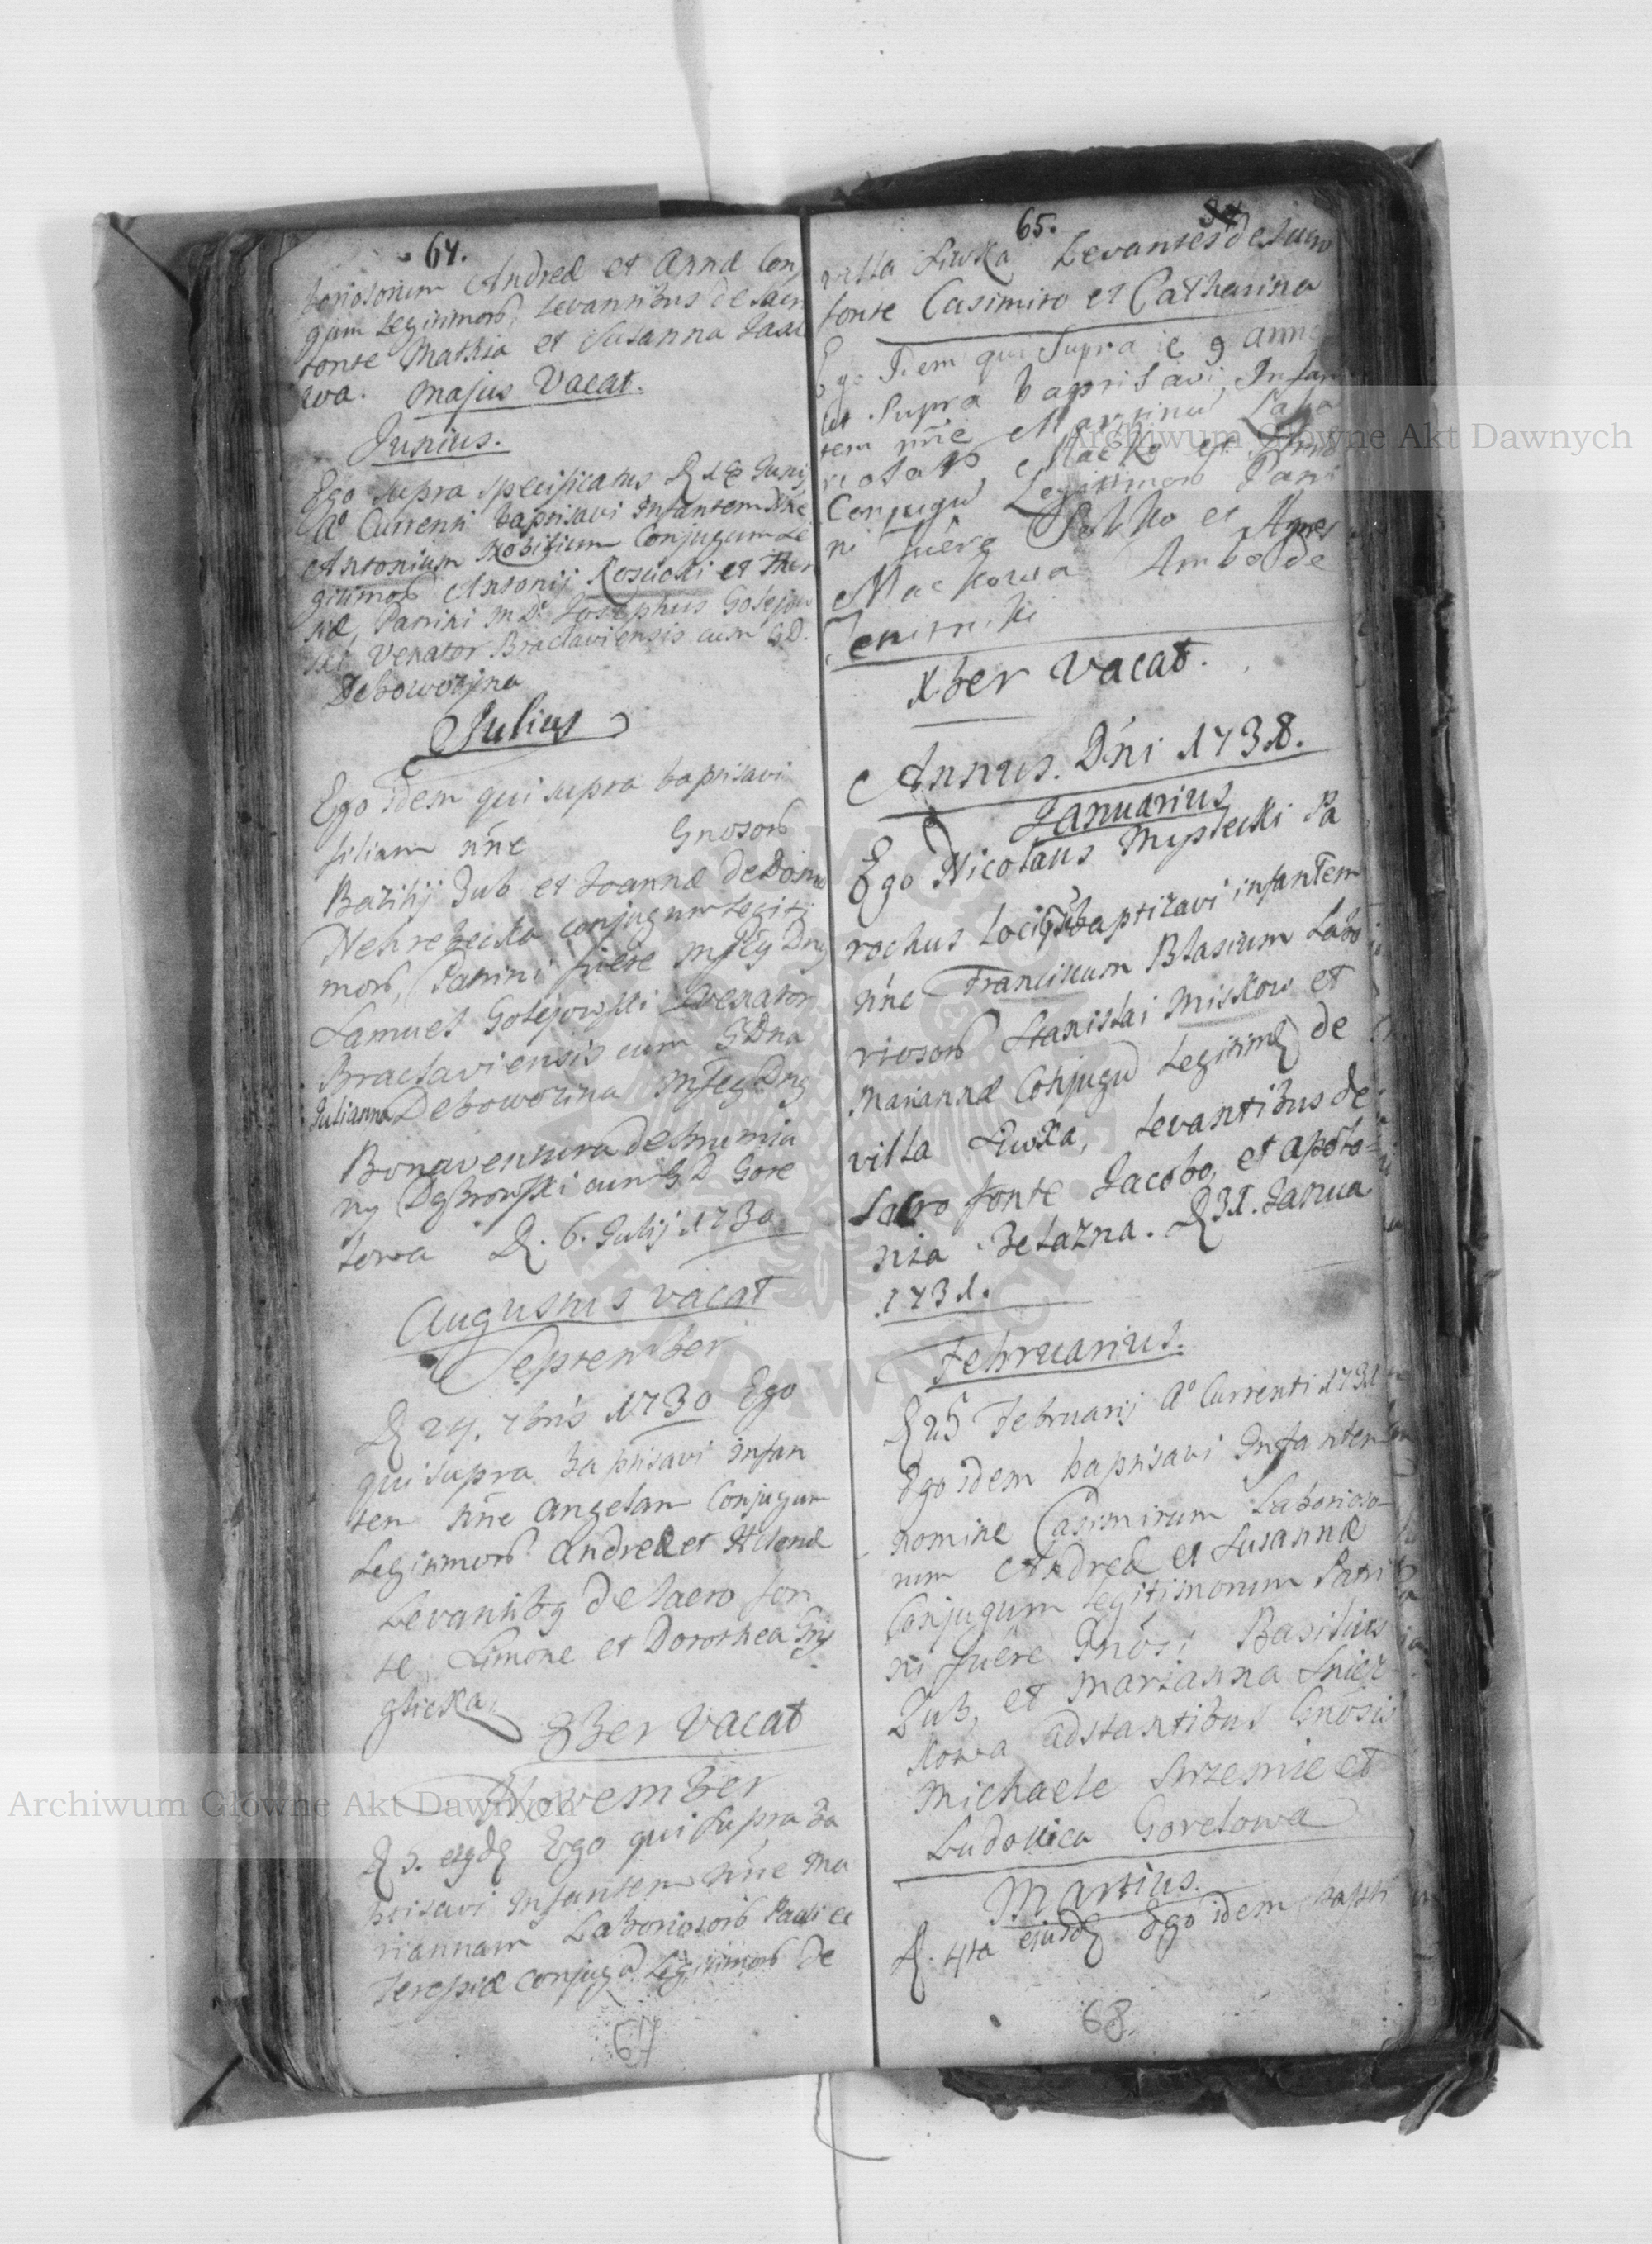 64.
boriosorum Andreæ et Annæ Con
gum Legitimorb, Levantibus de Sacro
fonte Mathia et Susanna
wa. Majus Vacat.
Junius.
Ego supra specificatus Junij
Aº Currenti baptisavi Infantem nñe
Antonium Nobilium Conjugum Le
gitimorb Antonij Kosucki et
Patrini M.D. Josephus Golejow
ski Venator Braclaviensis cum G.D.
Debowoizna
Julius
Ego idem qui supra baptisavi
filiam nñe Gnosorb
Bazilij Zub et Joannæ de Domo
Nehrebecka conjugum legiti
morb, Patrini fuere
Samuel Golejowski Venator
Braclaviensis cum GDna
Julianna Debowoizna
Bonaventura de
ny Dąbrowski cum G.D. Gore
lowa D. 6. Julij 1730
Augustus vacat
September
D 24. 7bris 1730 Ego
qui supra baptisavi infan
tem nñe Angelam Conjugum
Legitimorb Andreæ et
Levantibq de Sacro fon
te Simone et Dorothea
8ber Vacat
November
D 5. Ego qui supra ba
ptisavi Infantem nñe Ma
riannam Laboriosorb Pauli et
Teresiæ conjugũ Legitimorb de
67
65.
villa Liwka Levantes de sacro
fonte Casimiro et Catharina
Ego Idem qui supra 9 anno
ut supra baptisavi, Infan
tem nñe Martinũ Labo
riosorb Maćko et
Conjugũ Legitimorb Patri
ni fuêre et Agnes
Mackowa Ambo de
Xber Vacat.
Annus. Dñi 1731.
Januarius
Ego Nicolaus Mysłecki Pa
rochus Loci baptizavi infantem
nñe Franciscum Blasium Labo
riosorb Stanislai Miskow et
Mariannæ Conjugũ Legitimq de
villa Liwka, Levantibus de
Sacro fonte Jacobo, et Apolo
nia Zelazna. D 31. Janua
1731.
Februarius.
D 25 Februarij Aº Currenti 1731
Ego idem baptisavi Infantem
nomine Casimirum Laborioso
rum Andreæ et Susannæ
Conjugum Legitimorum Patri
ni fuêre Gnôsi Basilius
Zub, et Marianna Snier
kowa adstantibus Gnôsis
Michaele et
Ludovica Gorelowa
Martius.
D. 4ta ejusdq Ego idem bapti
68.
Archiwum Główne Akt Dawnych
Archiwum Główne Akt Dawnych